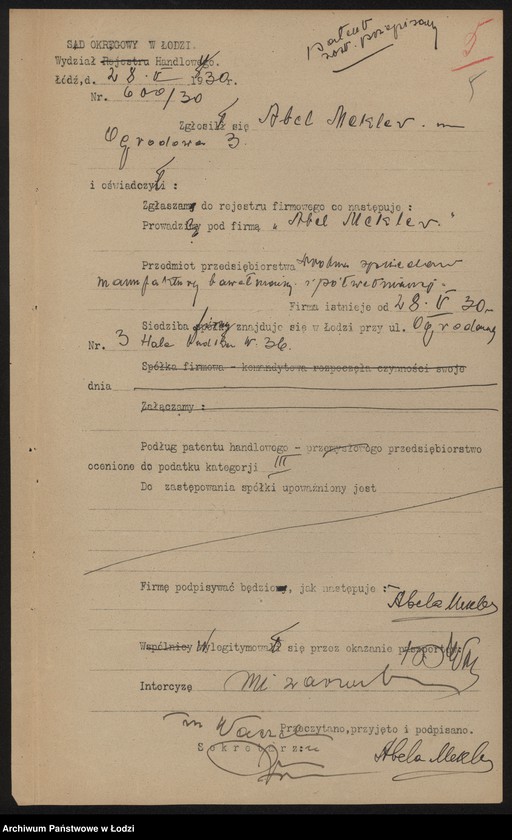 5
SĄD OKRĘGOWY W ŁODZI.
Wydział Rejestru Handlowego.
Łódź, d. 28.V 1930 r.
Nr. 600/30
5
Zgłosił się Abel Mekler
Ogrodowa 3
i oświadczył :
Zgłaszam do rejestru firmowego co następuje :
Prowadzimy pod firmą „Abel Mekler."
Przedmiot przedsiębiorstwa drobna sprzedaż
manufaktury bawełnianej i półwełnianej.
Firma istnieje od 28.V 30
Siedziba firmy znajduje się w Łodzi przy ul. Ogrodowej
Nr. 3 Hala N. 36.
Spółka firmowa - komandytowa rozpoczęła czynności swoje
dnia
Załączamy :
Podług patentu handlowego - przemysłowego przedsiębiorstwo
ocenione do podatku kategorji III
Do zastępowania spółki upoważniony jest
Firmę podpisywać będzie, jak następuje :
Abela Mekler
Wspólnicy Wylegitymował się przez okazanie paszportem:
Intercyzę nie zawarł
Przeczytano, przyjęto i podpisano.
Sekretarz:
Abela Mekler
Archiwum Państwowe w Łodzi